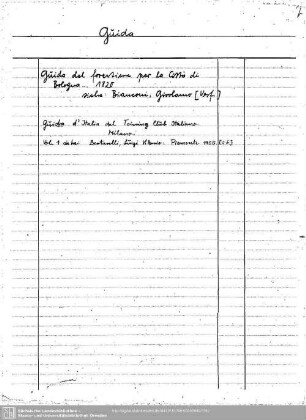 Guida
Guida del forestiere per la Città di
Bologna... 1825
siehe: Bianconi, Girolamo [Verf.]
Guida d'Italia del Touring Club Italiano.
Milano.
Vol. 1 siehe: Bertarelli, Luigi Vittorio: Piemonte
Sächsische Landesbibliothek -
Staats- und Universitätsbibliothek Dresden